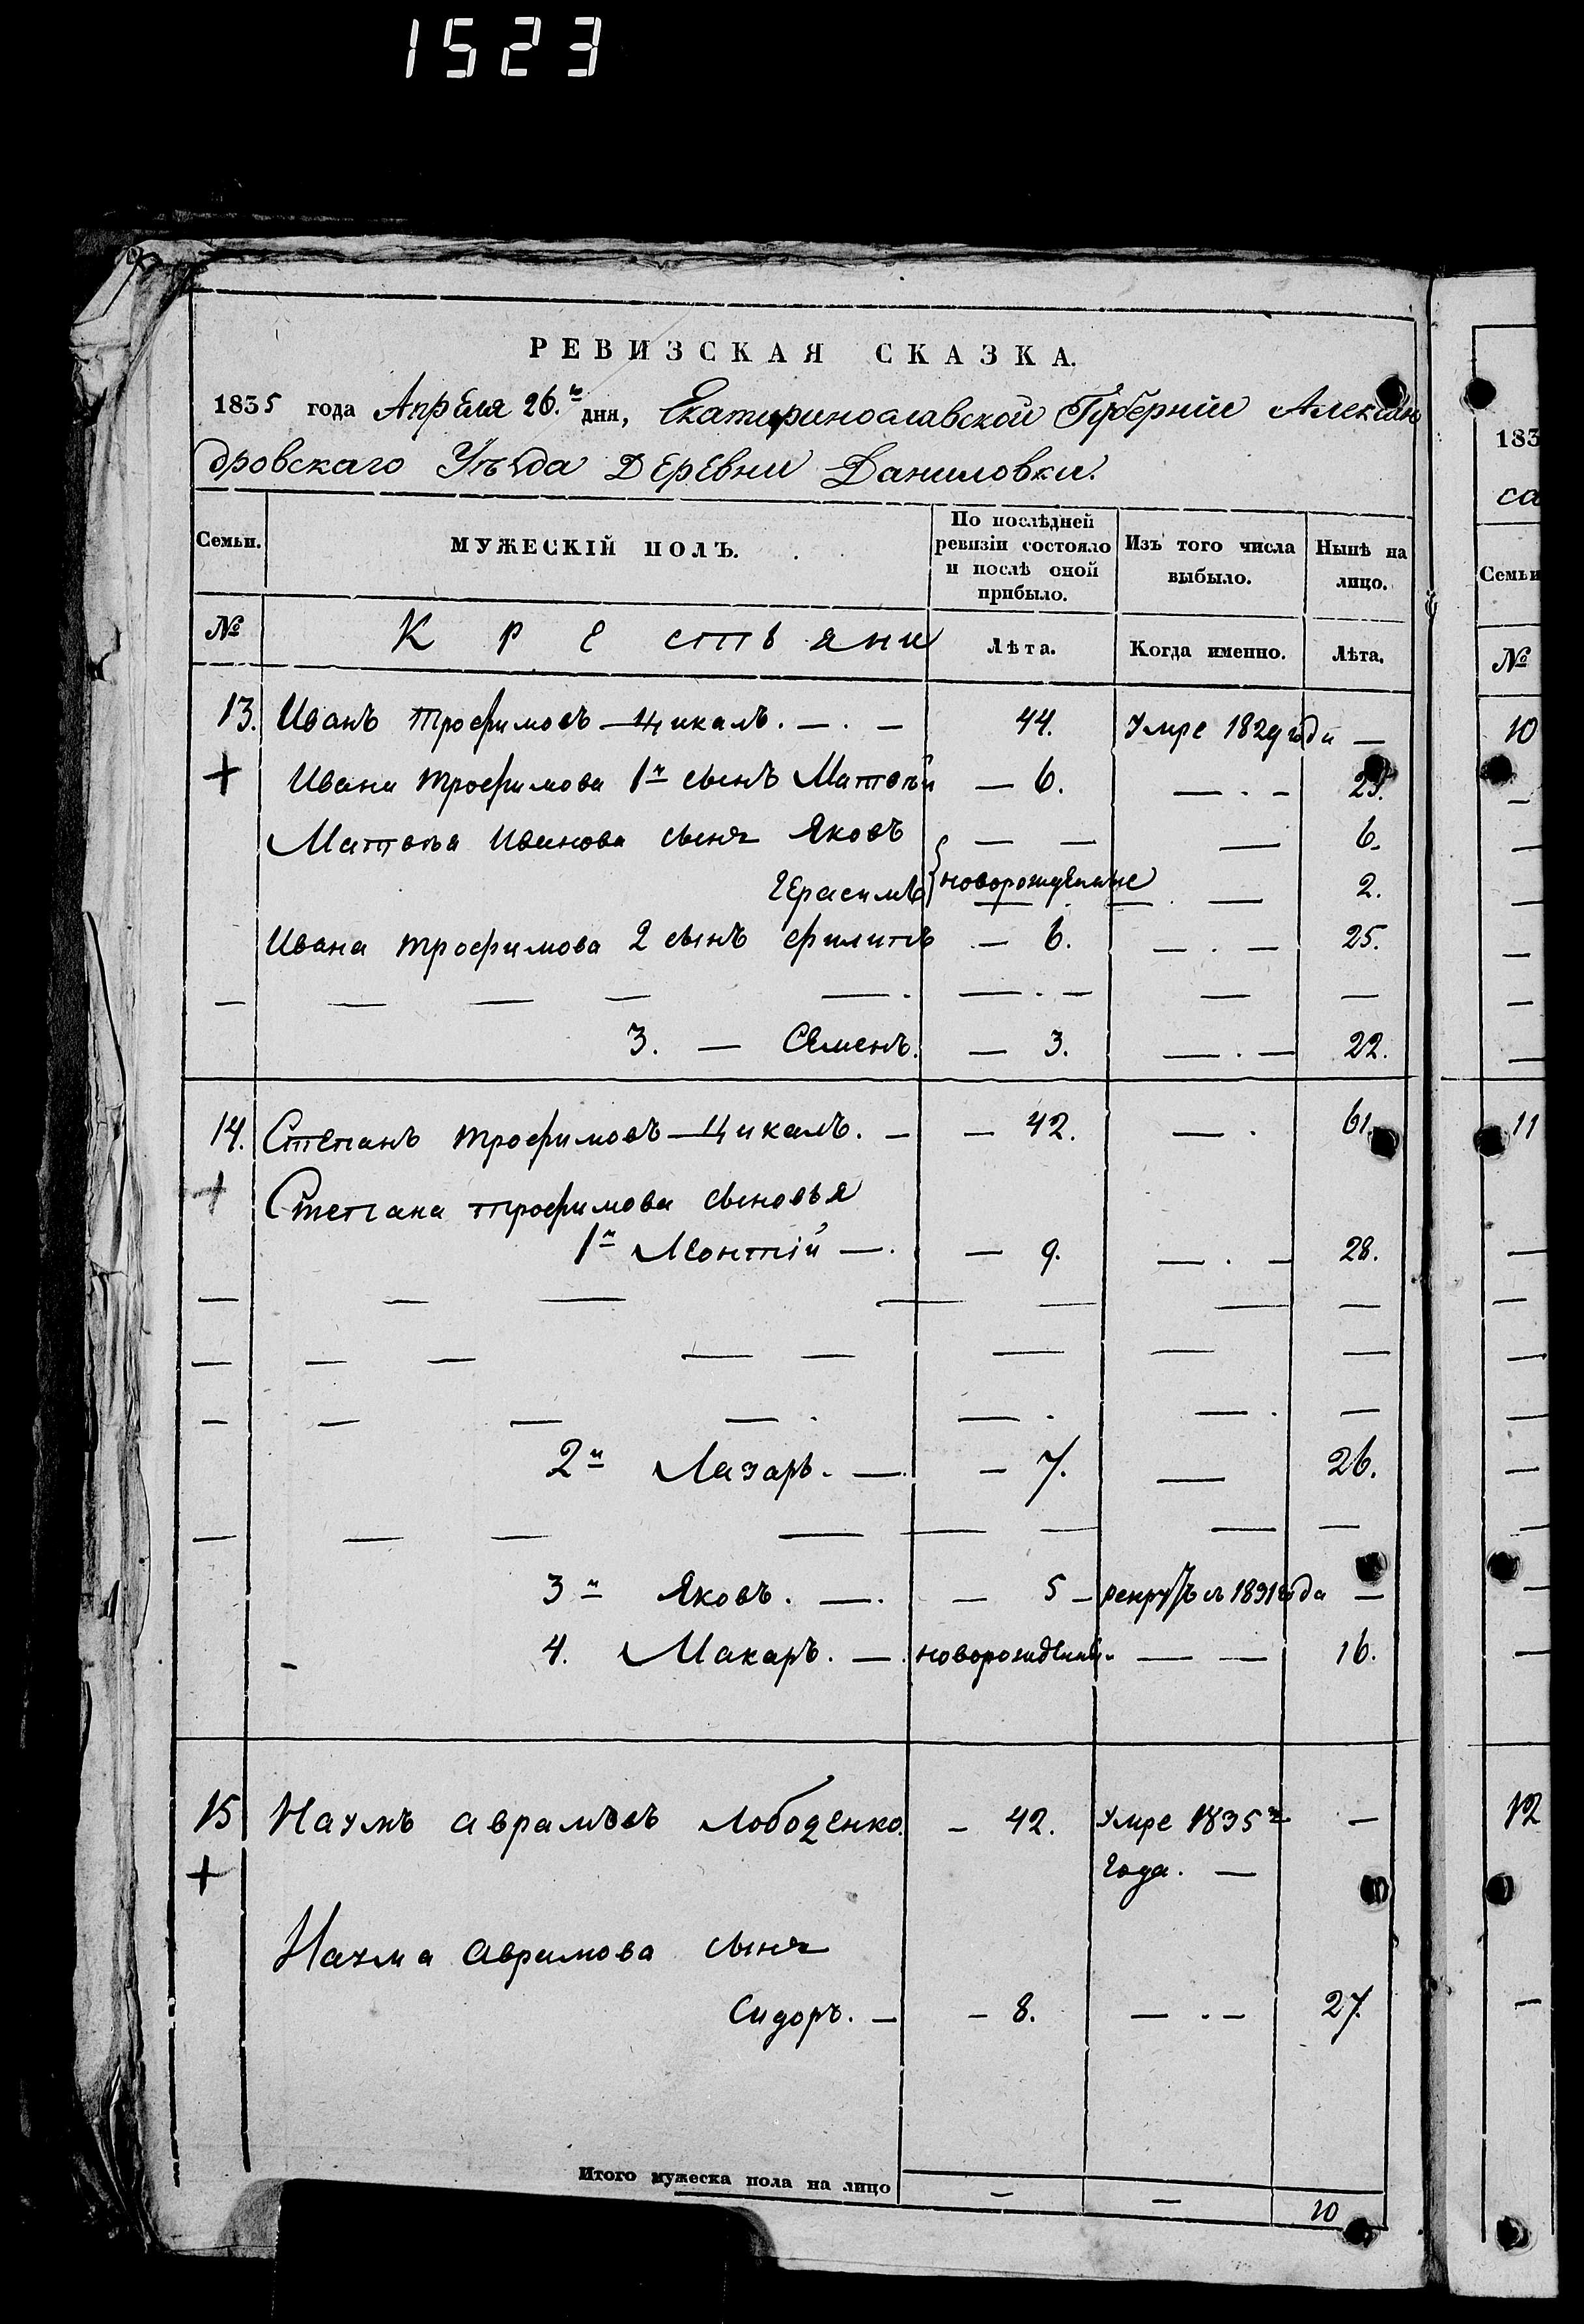 1523
РЕВИЗСКАЯ СКАЗКА.
1835 года Апреля 26.го дня, Екатеринославской Губернiи Алексан
дровскаго Уѣзда Деревни Даниловки.
Семьи. МУЖЕСКIЙ ПОЛЪ. По послѣдней ревизiи состояло и послѣ оной прибыло. Изъ того числа выбыло. Ныне на лицо.
№ Крестьяни Лѣта. Когда именно. Лѣта.
13. Иванъ Трофимовъ — Цикалъ. — . — 44. Умре 1829 года —
+ Ивана Трофимова 1й сынъ Матвѣй — 6. — . — 25.
Матвѣя Иванова сыня Яковъ — — — 6.
Герасимъ новорожденные — 2.
Ивана Трофимова 2 сынъ Филипъ — 6. — . — 25.
— — — — — . — . — — —
3. — Семенъ. — 3. — . — 22.
14. Степанъ Трофимовъ — Цикалъ. — — 42. — . 61.
+ Степана Трофимова сыновья
1й Леонтiй — . — 9. — . — 28.
— — — — — — —
— — — — — — — —
— — — — . — . — . —
2й Лазарь. — . — 7. — 26.
— — — — — — — —
3й Яковъ. — . — 5 — 1831 года —
- 4. Макаръ. — . новорожденный — — 16.
15 Наумъ Аврамовъ Лободенко. — 42. Умре 1835го —
+ Года. —
Наума Аврамова сыня
Сидоръ. — — 8. — . — 27.
Итого мужеска пола на лицо — — 10
183
са
Семьи
№
10
11
12